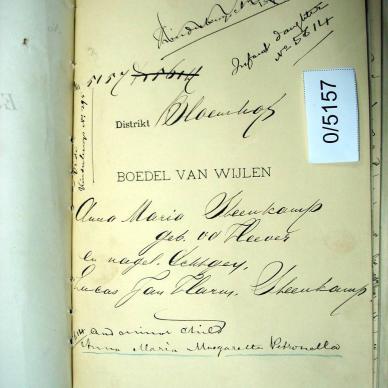 Infant daughter
No 5614
5157
0/5157
Distrikt Bloemhof
BOEDEL VAN WIJLEN
Anna Maria Steenkamp
geb. v d Heever
en nagel. Echtgen.
Lucas Jan Harm. Steenkamp
and minor child
Anna Maria Margaretta Petronella